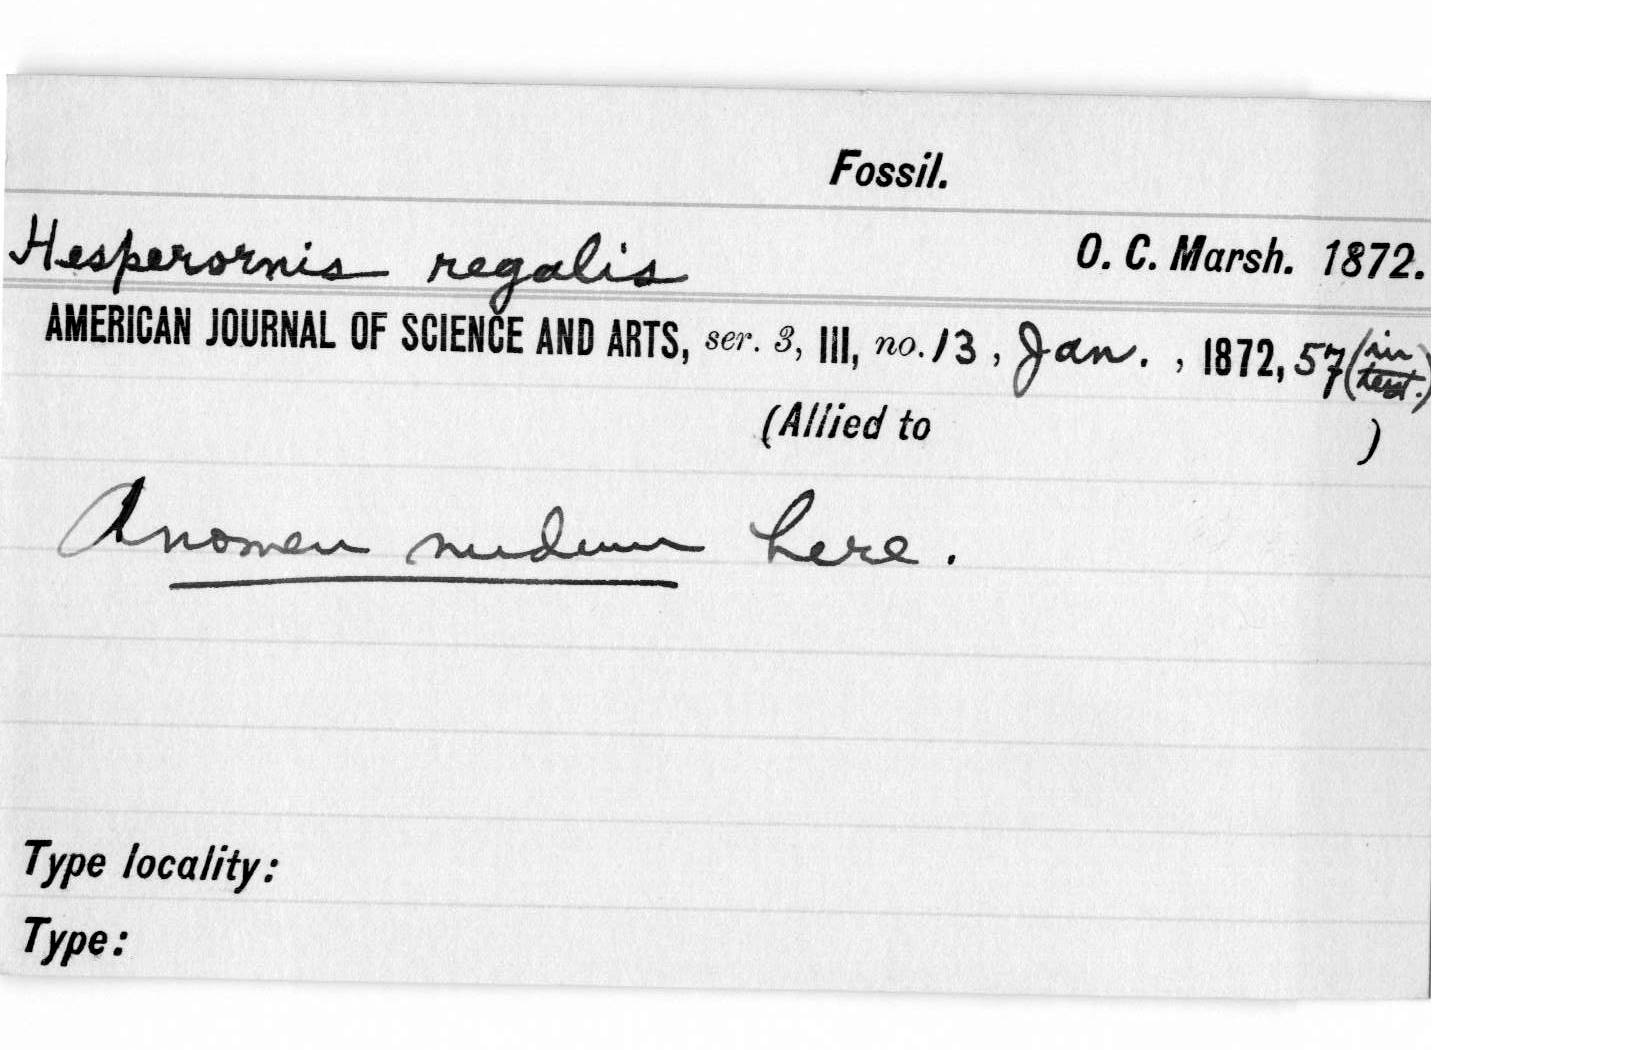 Fossil.
Hesperornis regalis O. C. Marsh. 1872.
AMERICAN JOURNAL OF SCIENCE AND ARTS, ser. 3, III, no. 13, Jan., 1872, 57 (in text.)
(Allied to )
A nomen nudum here.
Type locality:
Type: